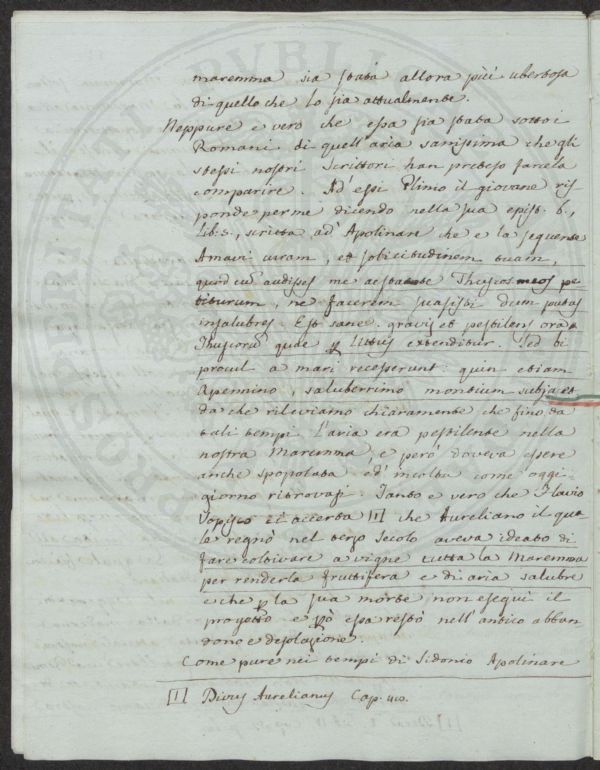 maremma sia stata allora più ubertosa
di quello che lo sia attualmente.
Neppure e vero che essa sia stata sotto i
Romani di quell'aria sanissima che gli
stessi nostri Scrittori han preteso farela
comparire. Ad' essi Plinio il giovane ris
ponde per me dicendo nella sua epist. 6.,
Lib: 5., scritta ad' Apolinare che e la seguente
Amavi curam, et solicitudinem tuam,
quod cum audisses me aestate Thuscos meos pe=
titurum, ne facerem suasisti dum putas
insalubres. Est sane gravis et pestilens ora
Thuscorū quae p Littus extenditur. Sed hi
procul a mari recesserunt: quin etiam
Apennino, saluberrimo montium subjacet
da che rileviamo chiaramente che fino da
tali tempi l'aria era pestilente nella
nostra Maremma, e però doveva essere
anche spopolata ed' incolta come oggi
giorno ritrovasi. Tanto e vero che Flavio
Vopisco ci accerta [1] che Aureliano il qua
le regnò nel terzo Secolo aveva ideato di
fare coltivare a vigne tutta la Maremma
per renderla fruttifera e di aria salubre
e che p la sua morte non eseguì il
progetto e pò essa restò nell'antico abban
dono e desolazione.
Come pure nei tempi di Sidonio Apolinare
[1] Divus Aurelianus Cap.